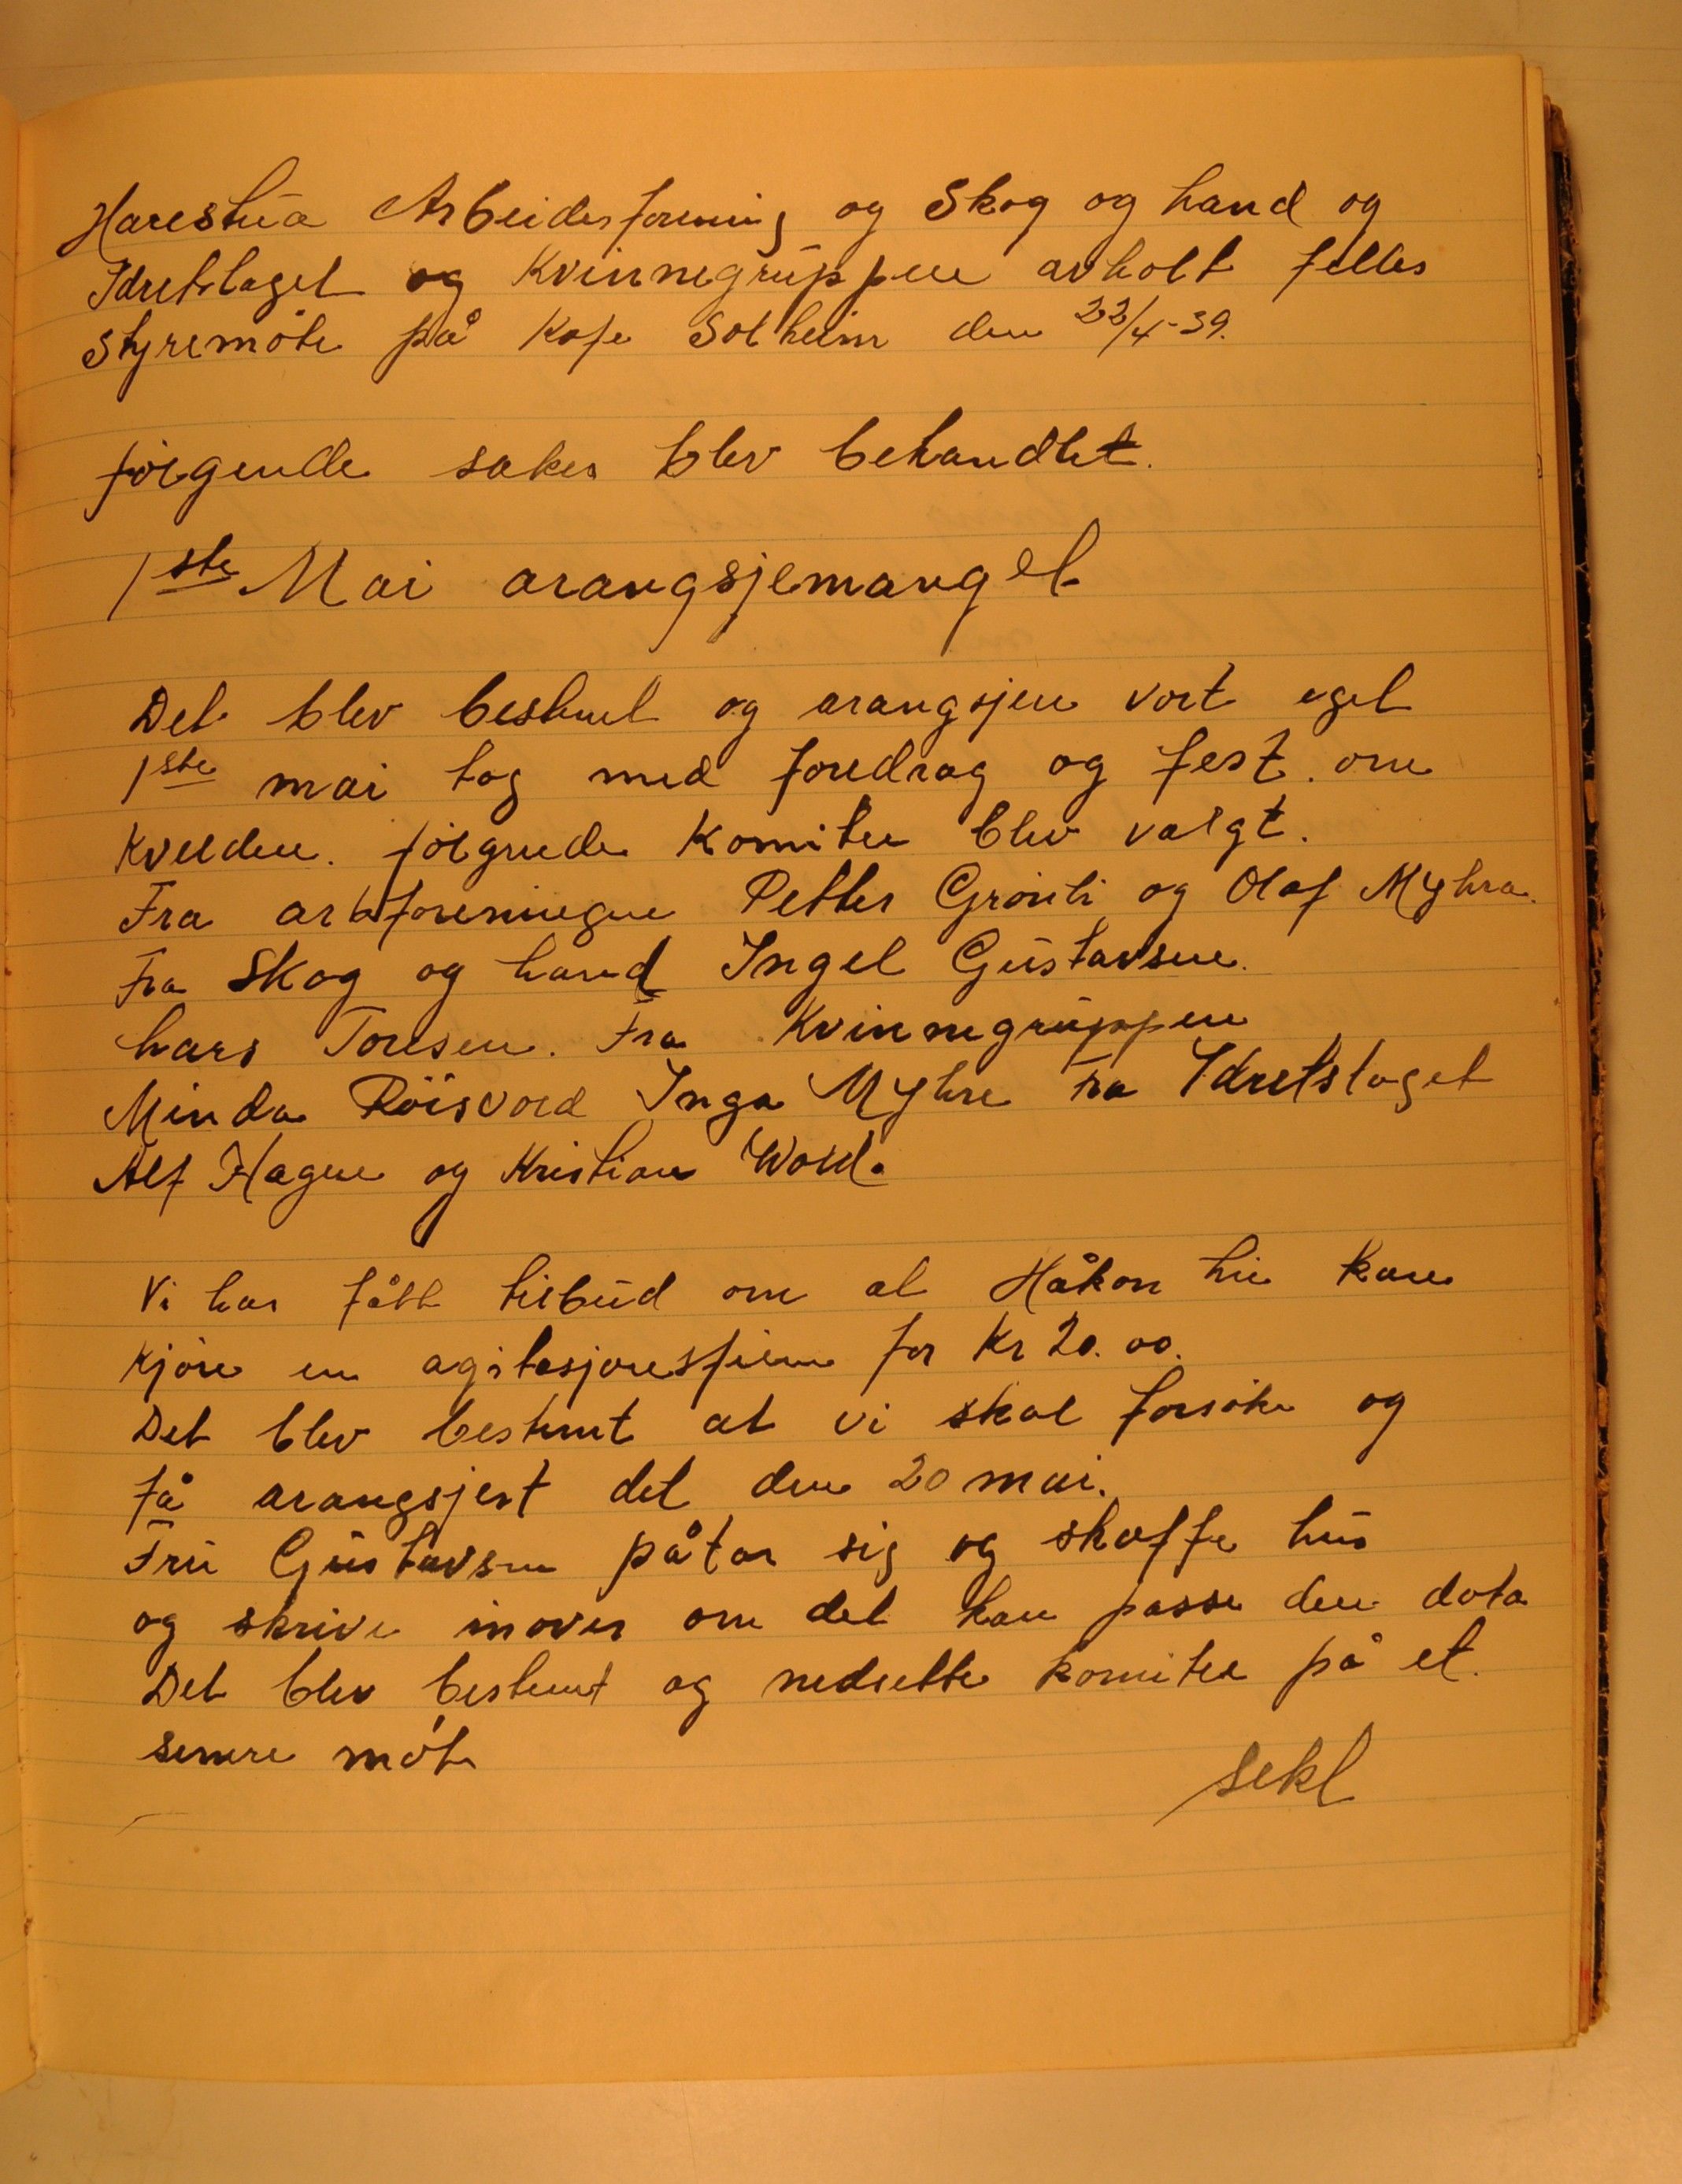 Harestua Arbeiderforening og Skog og Land og
Idretslaget og Kvinnegruppen avholt felles
styremøte på Kafe Solheim den 22/4-39.
følgende saker blev behandlet.
1ste Mai arangsjemanget
Det blev bestemt og arangsjere vort eget
1ste mai tog med foredrag og fest om
kvelden. følgende Komitee blev valgt.
Fra arbforeningen Petter Grønli og Olaf Myhra.
Fra Skog og Land Ingel Gustavsen.
Lars Toresen. Fra Kvinnegruppen
Minda Röisvold Inga Myhre Fra Idretslaget
Alf Hagen og Kristian Wold.
Vi har fått tilbud om at Håkon Lie kan
kjøre en agitasjonsfilm for Kr 20.00.
Det blev bestemt at vi skal forsøke og
få arangsjert det den 20 mai.
Fru Gustavsen påtar sig og skaffe hus
og skrive inover om det kan passe den data
Det blev bestemt og nedsette komitee på et
senere møte
sekt